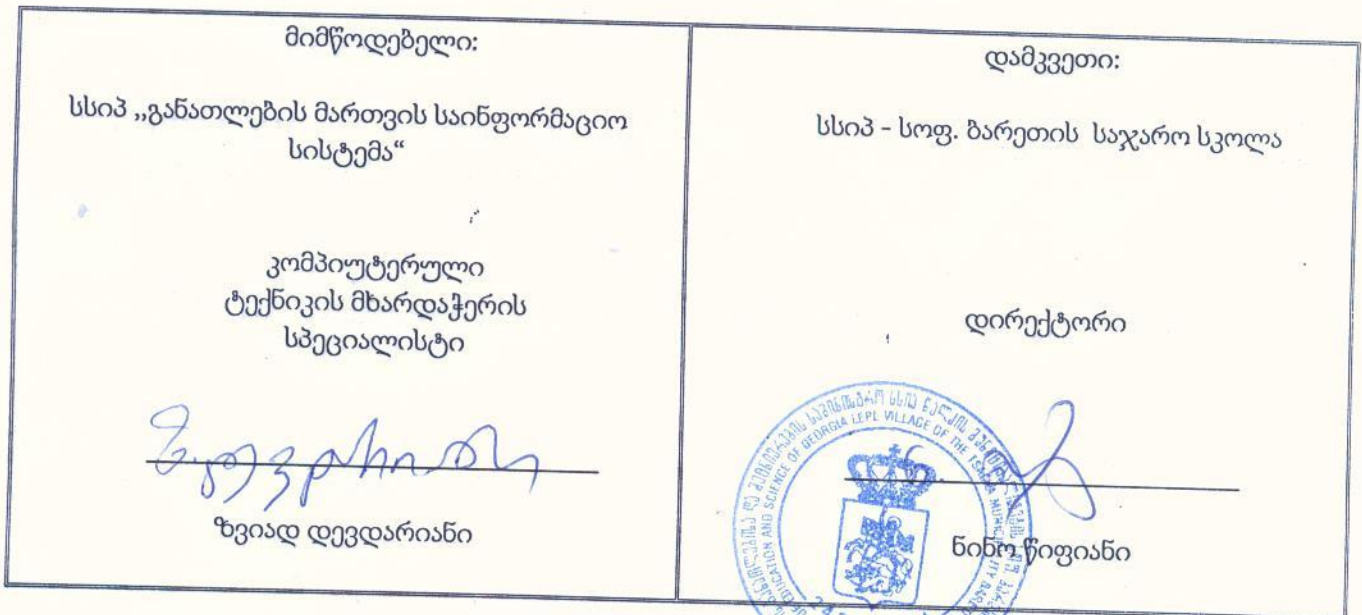 მიმწოდებელი:
სსიპ „განათლების მართვის საინფორმაციო
სისტემა“
კომპიუტერული
ტექნიკის მხარდაჭერის
სპეციალისტი
ზვიად დევდარიანი
დამკვეთი:
სსიპ - სოფ. ბარეთის საჯარო სკოლა
დირექტორი
ნინო წიფიანი
EDUCATION AND SCIENCE OF GEORGIA LEPL VILLAGE OF THE TSALKA MUNICIPALITY